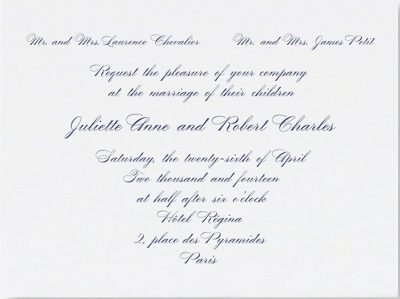 Mr. and Mrs. Laurence Chevalier Mr. and Mrs. James Petit
Request the pleasure of your company
at the marriage of their children
Juliette Anne and Robert Charles
Saturday, the twenty-sixth of April
Two thousand and fourteen
at half after six o'clock
Hôtel Régina
2, place des Pyramides
Paris